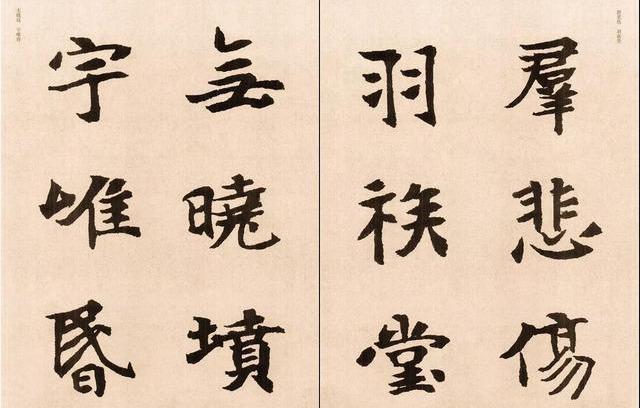 羣悲傷
羽族堂
無曉墳
宇唯昏